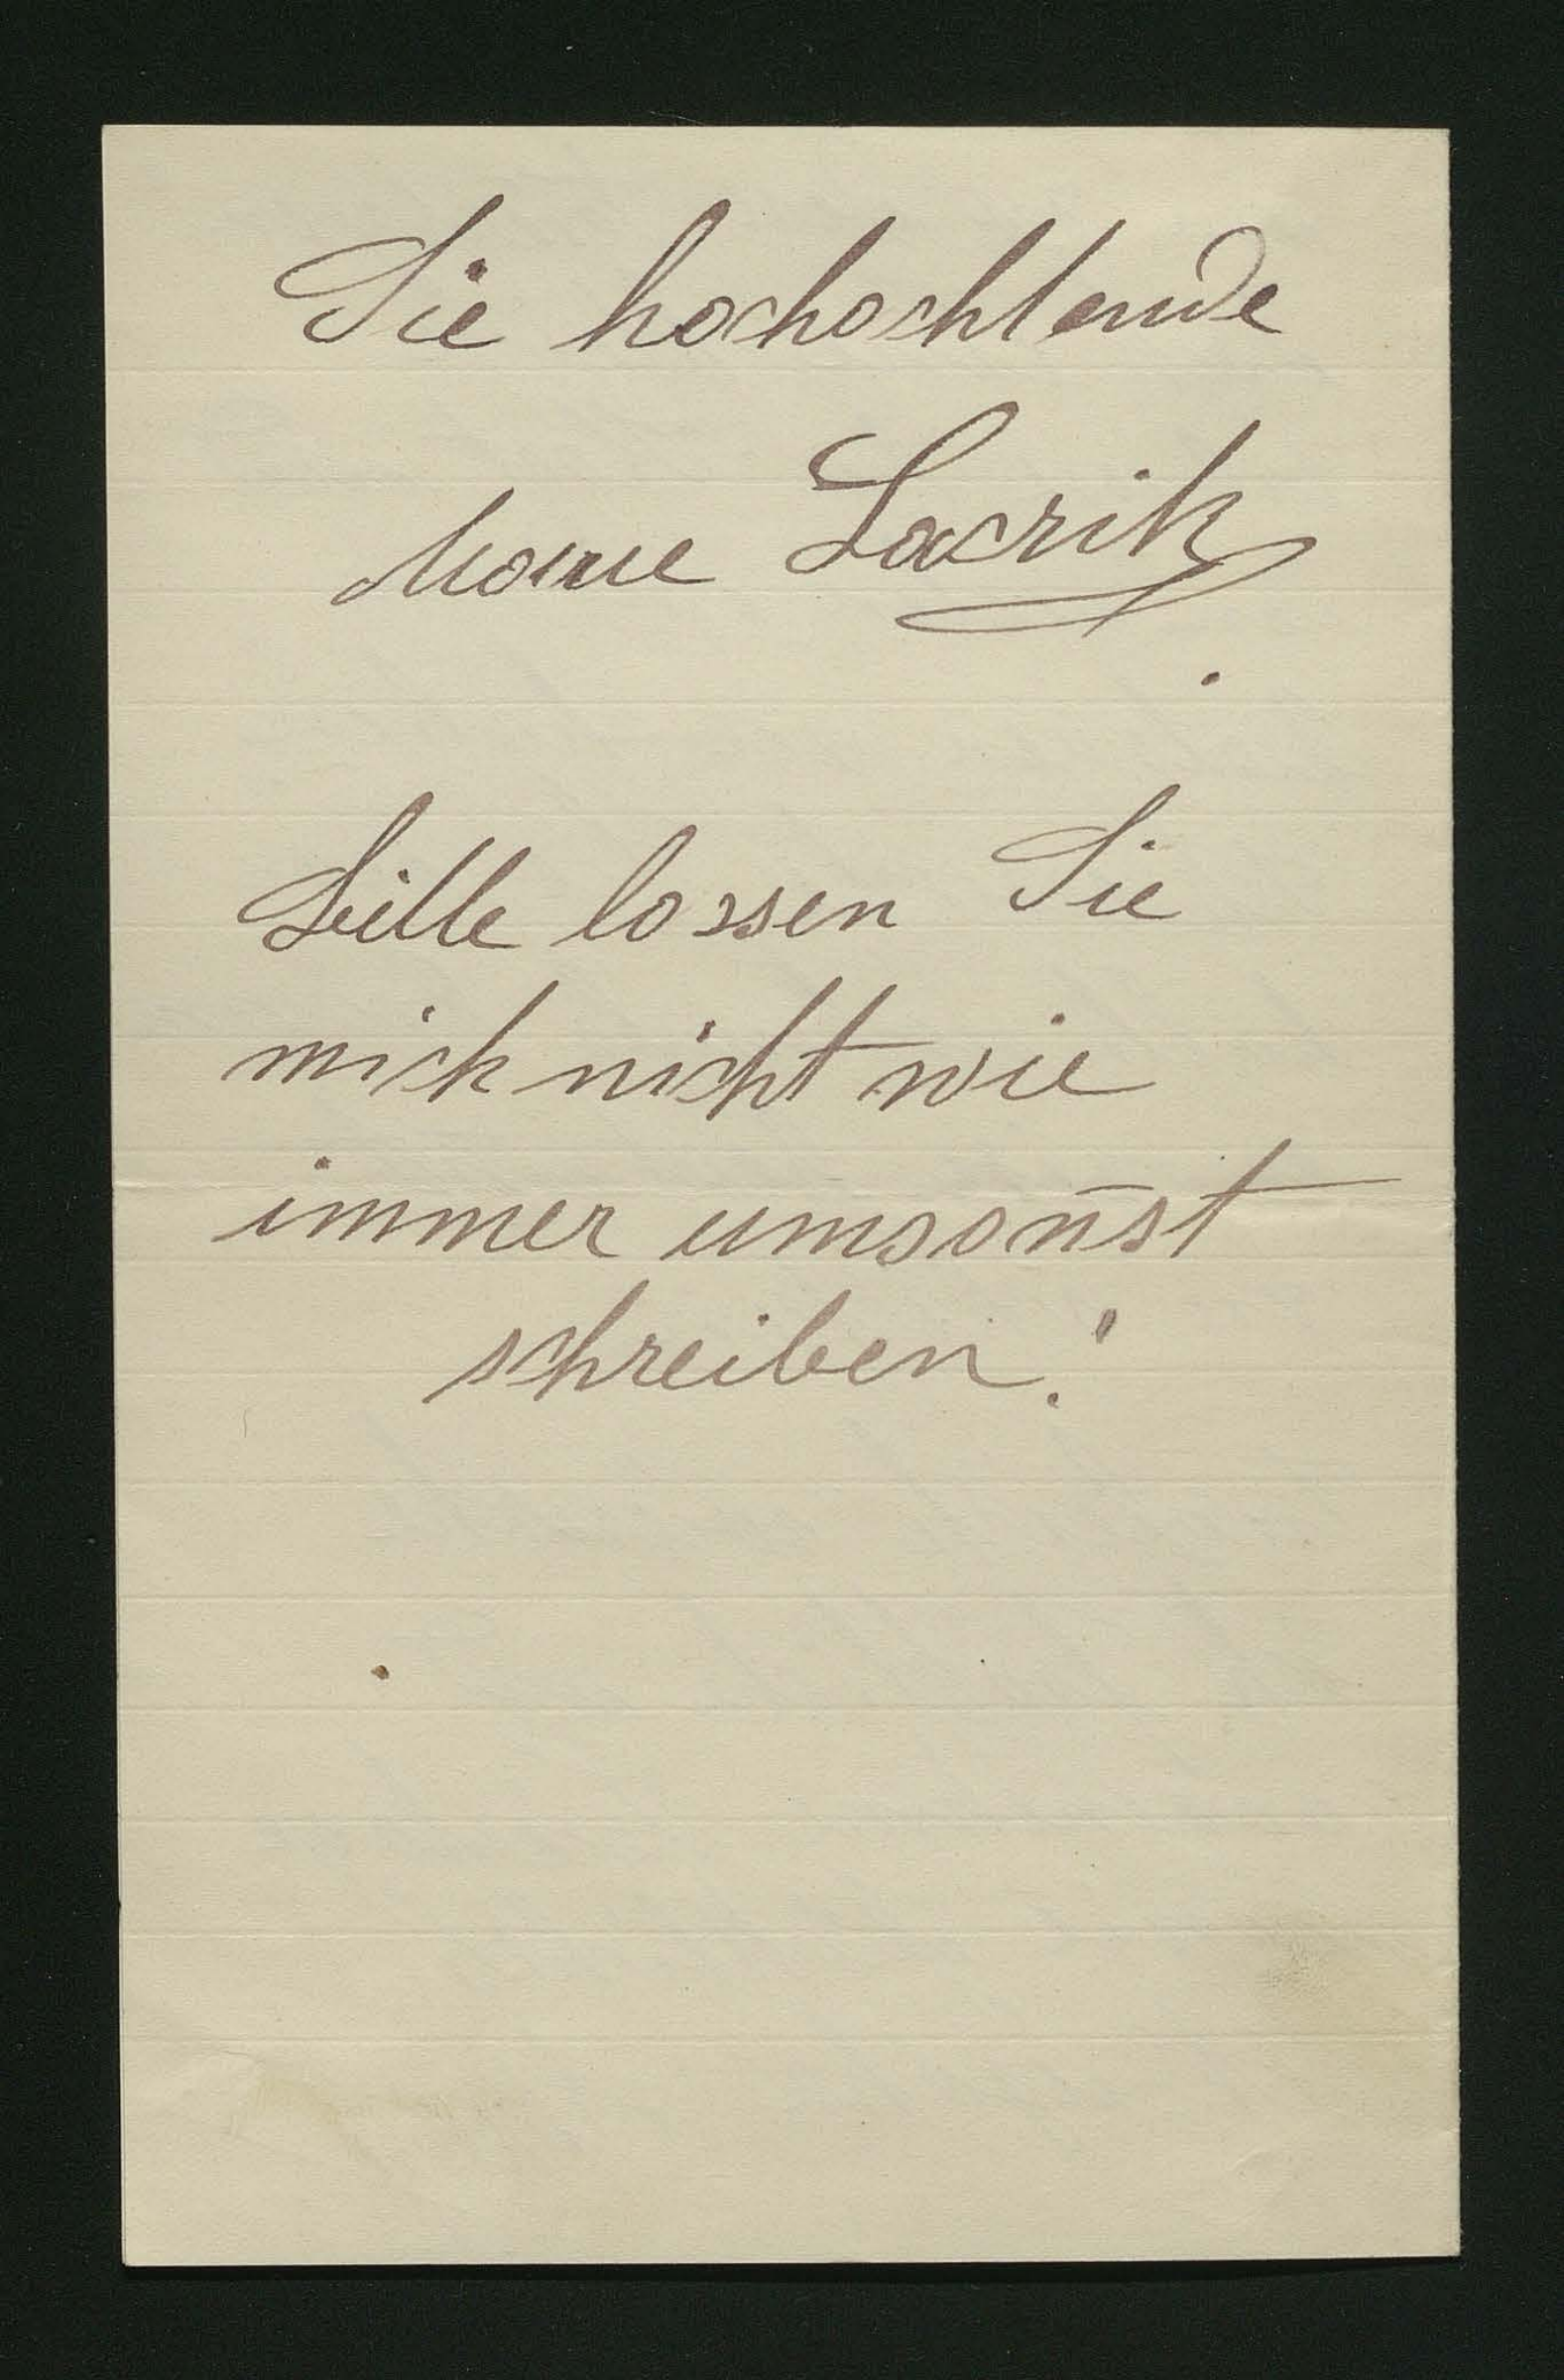 Sie hochachtende
Marie Lacrik
Bitte lassen Sie
mich nicht wie
immer umsonst
schreiben!